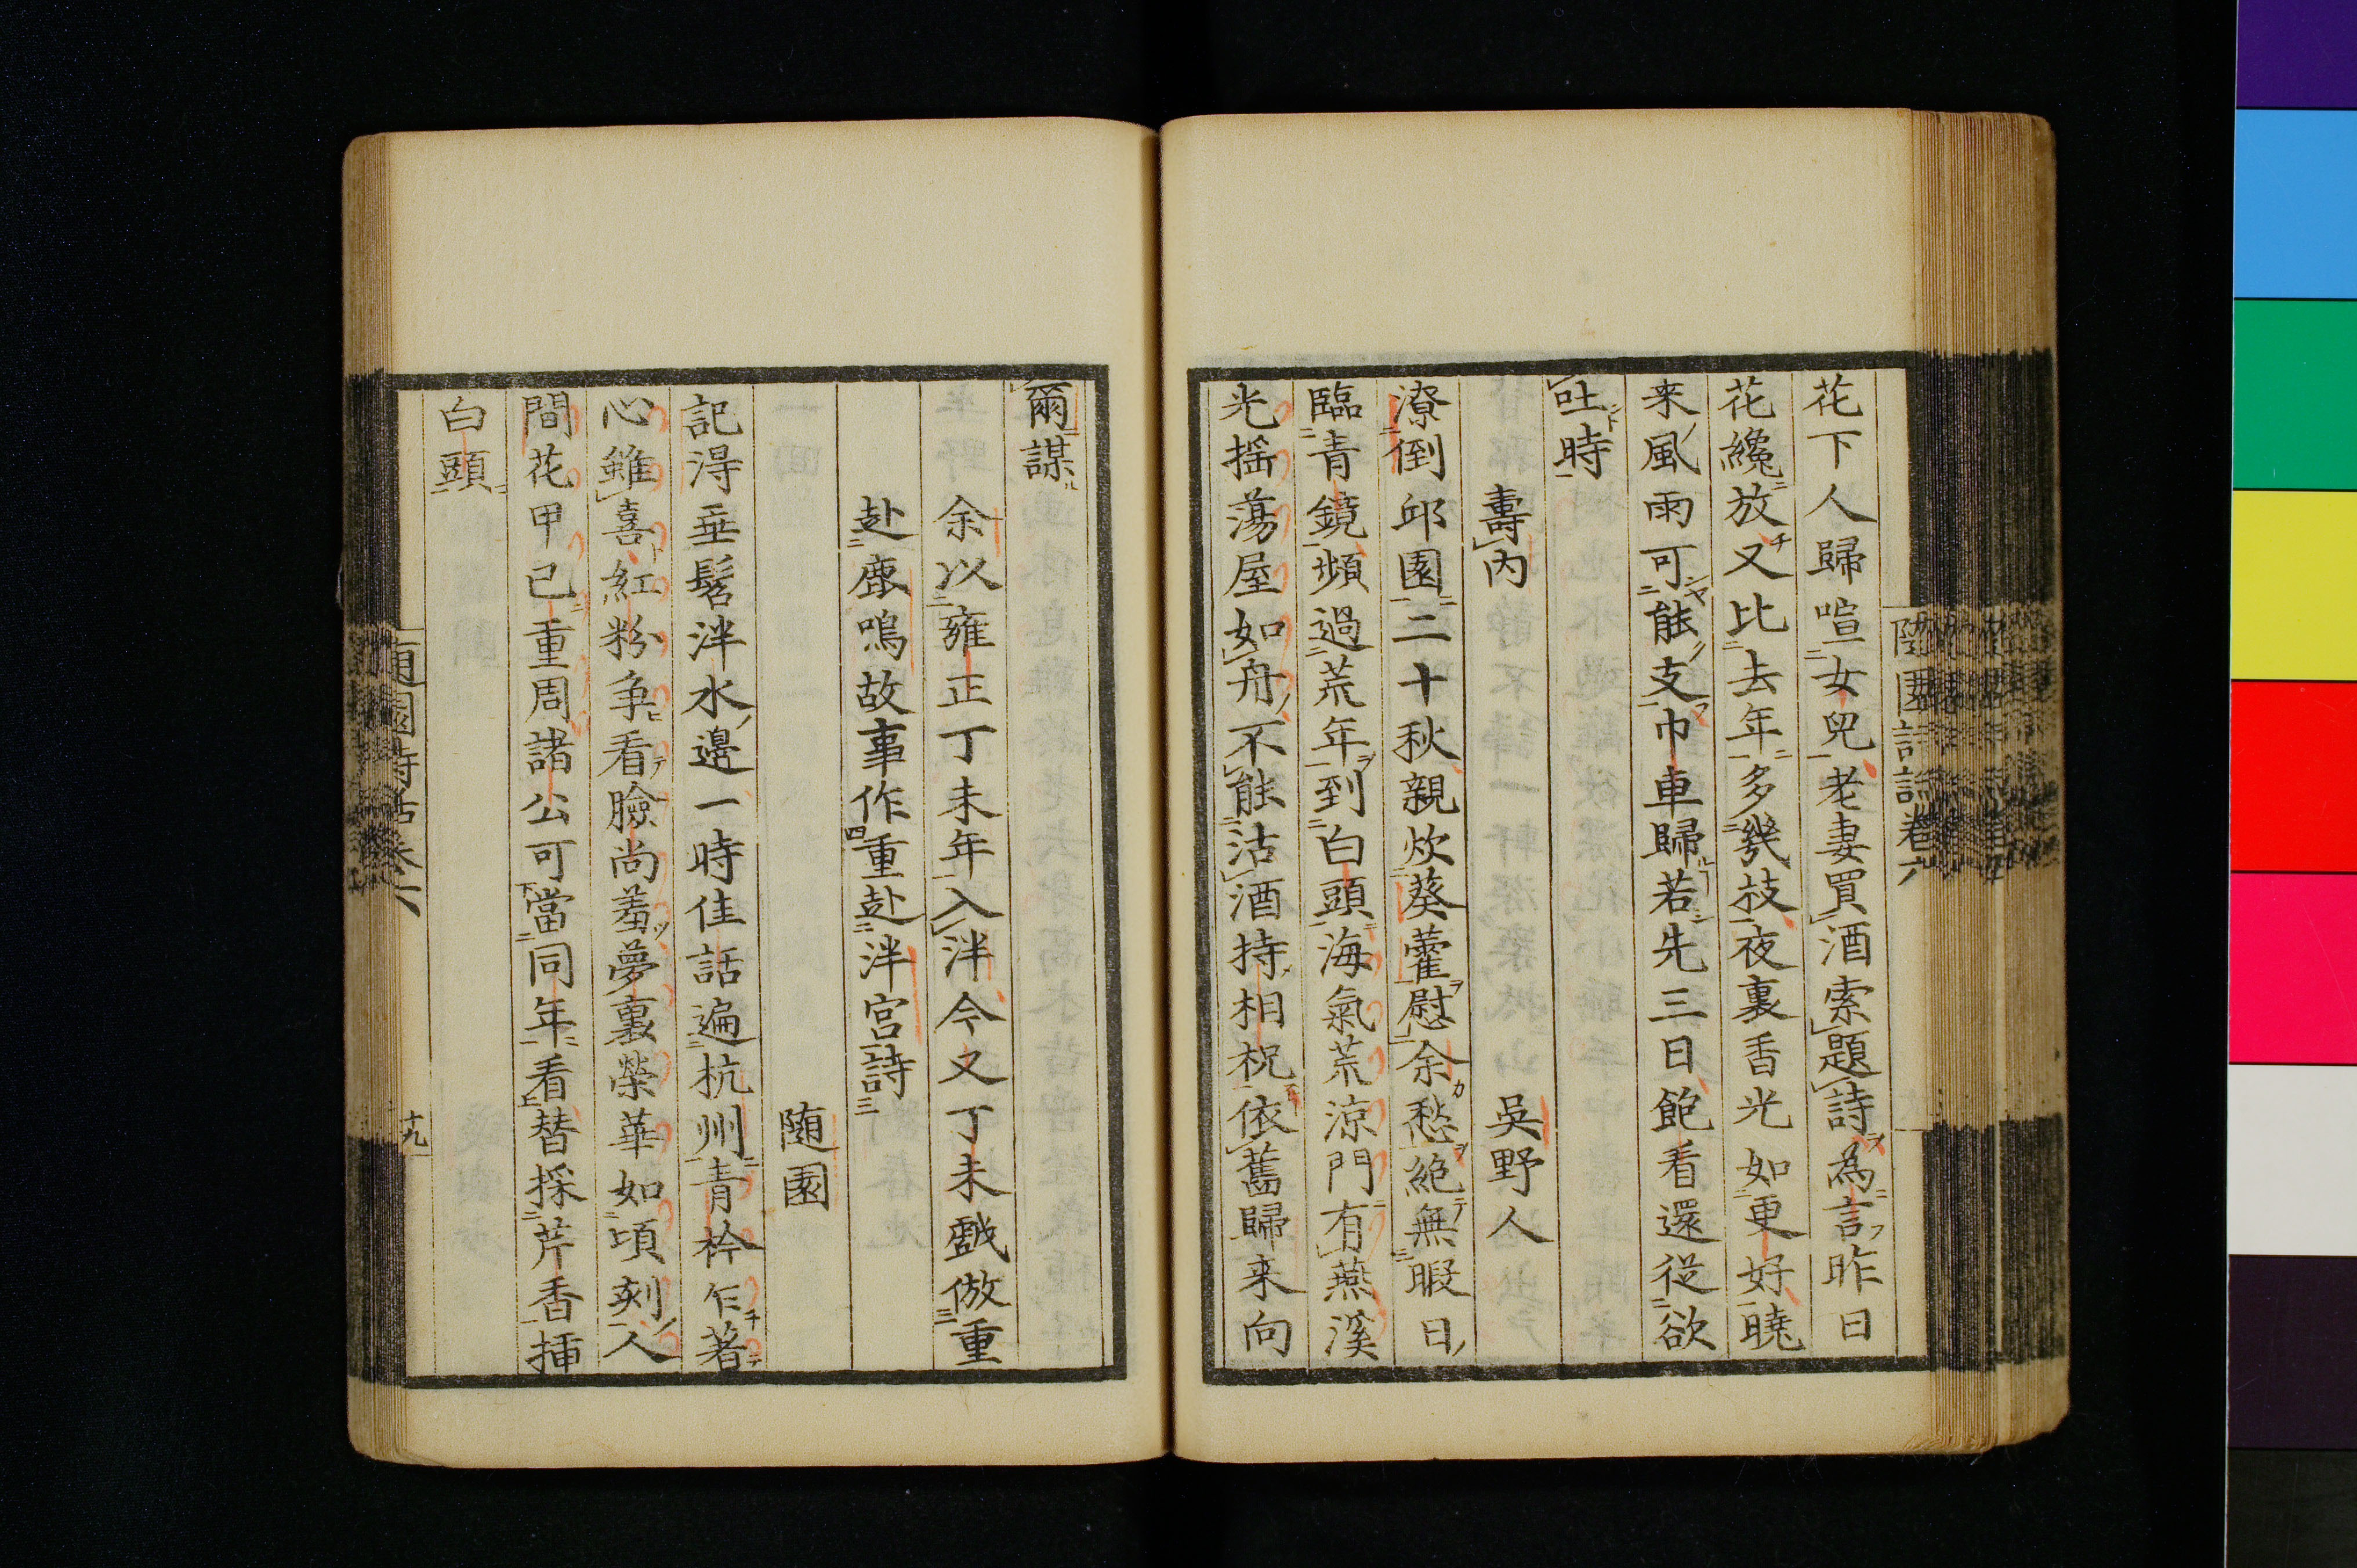 花下人歸喧女兒老妻買酒索題詩為言昨日
花纔放又比去年多幾枝夜裏香光如更好曉
来風雨可能支巾車歸若先三日飽看還從欲
吐時
壽内 吳野人
潦倒邱園二十秋親炊葵藿慰余愁絶無暇日
臨青鏡頻過荒年到白頭海氣荒涼門有燕溪
光揺蕩屋如舟不能沽酒持相祝依舊歸来向
爾謀
余以雍正丁未年入泮今又丁未戲倣重
赴鹿鳴故事作重赴泮宮詩
随園
記得垂髫泮水邊一時佳話遍杭州青衿乍著
心雖喜紅粉争看臉尚羞夢裏榮華如頃刻人
間花甲已重周諸公可當同年看替採芹香挿
白頭
随園詩話卷六
十九